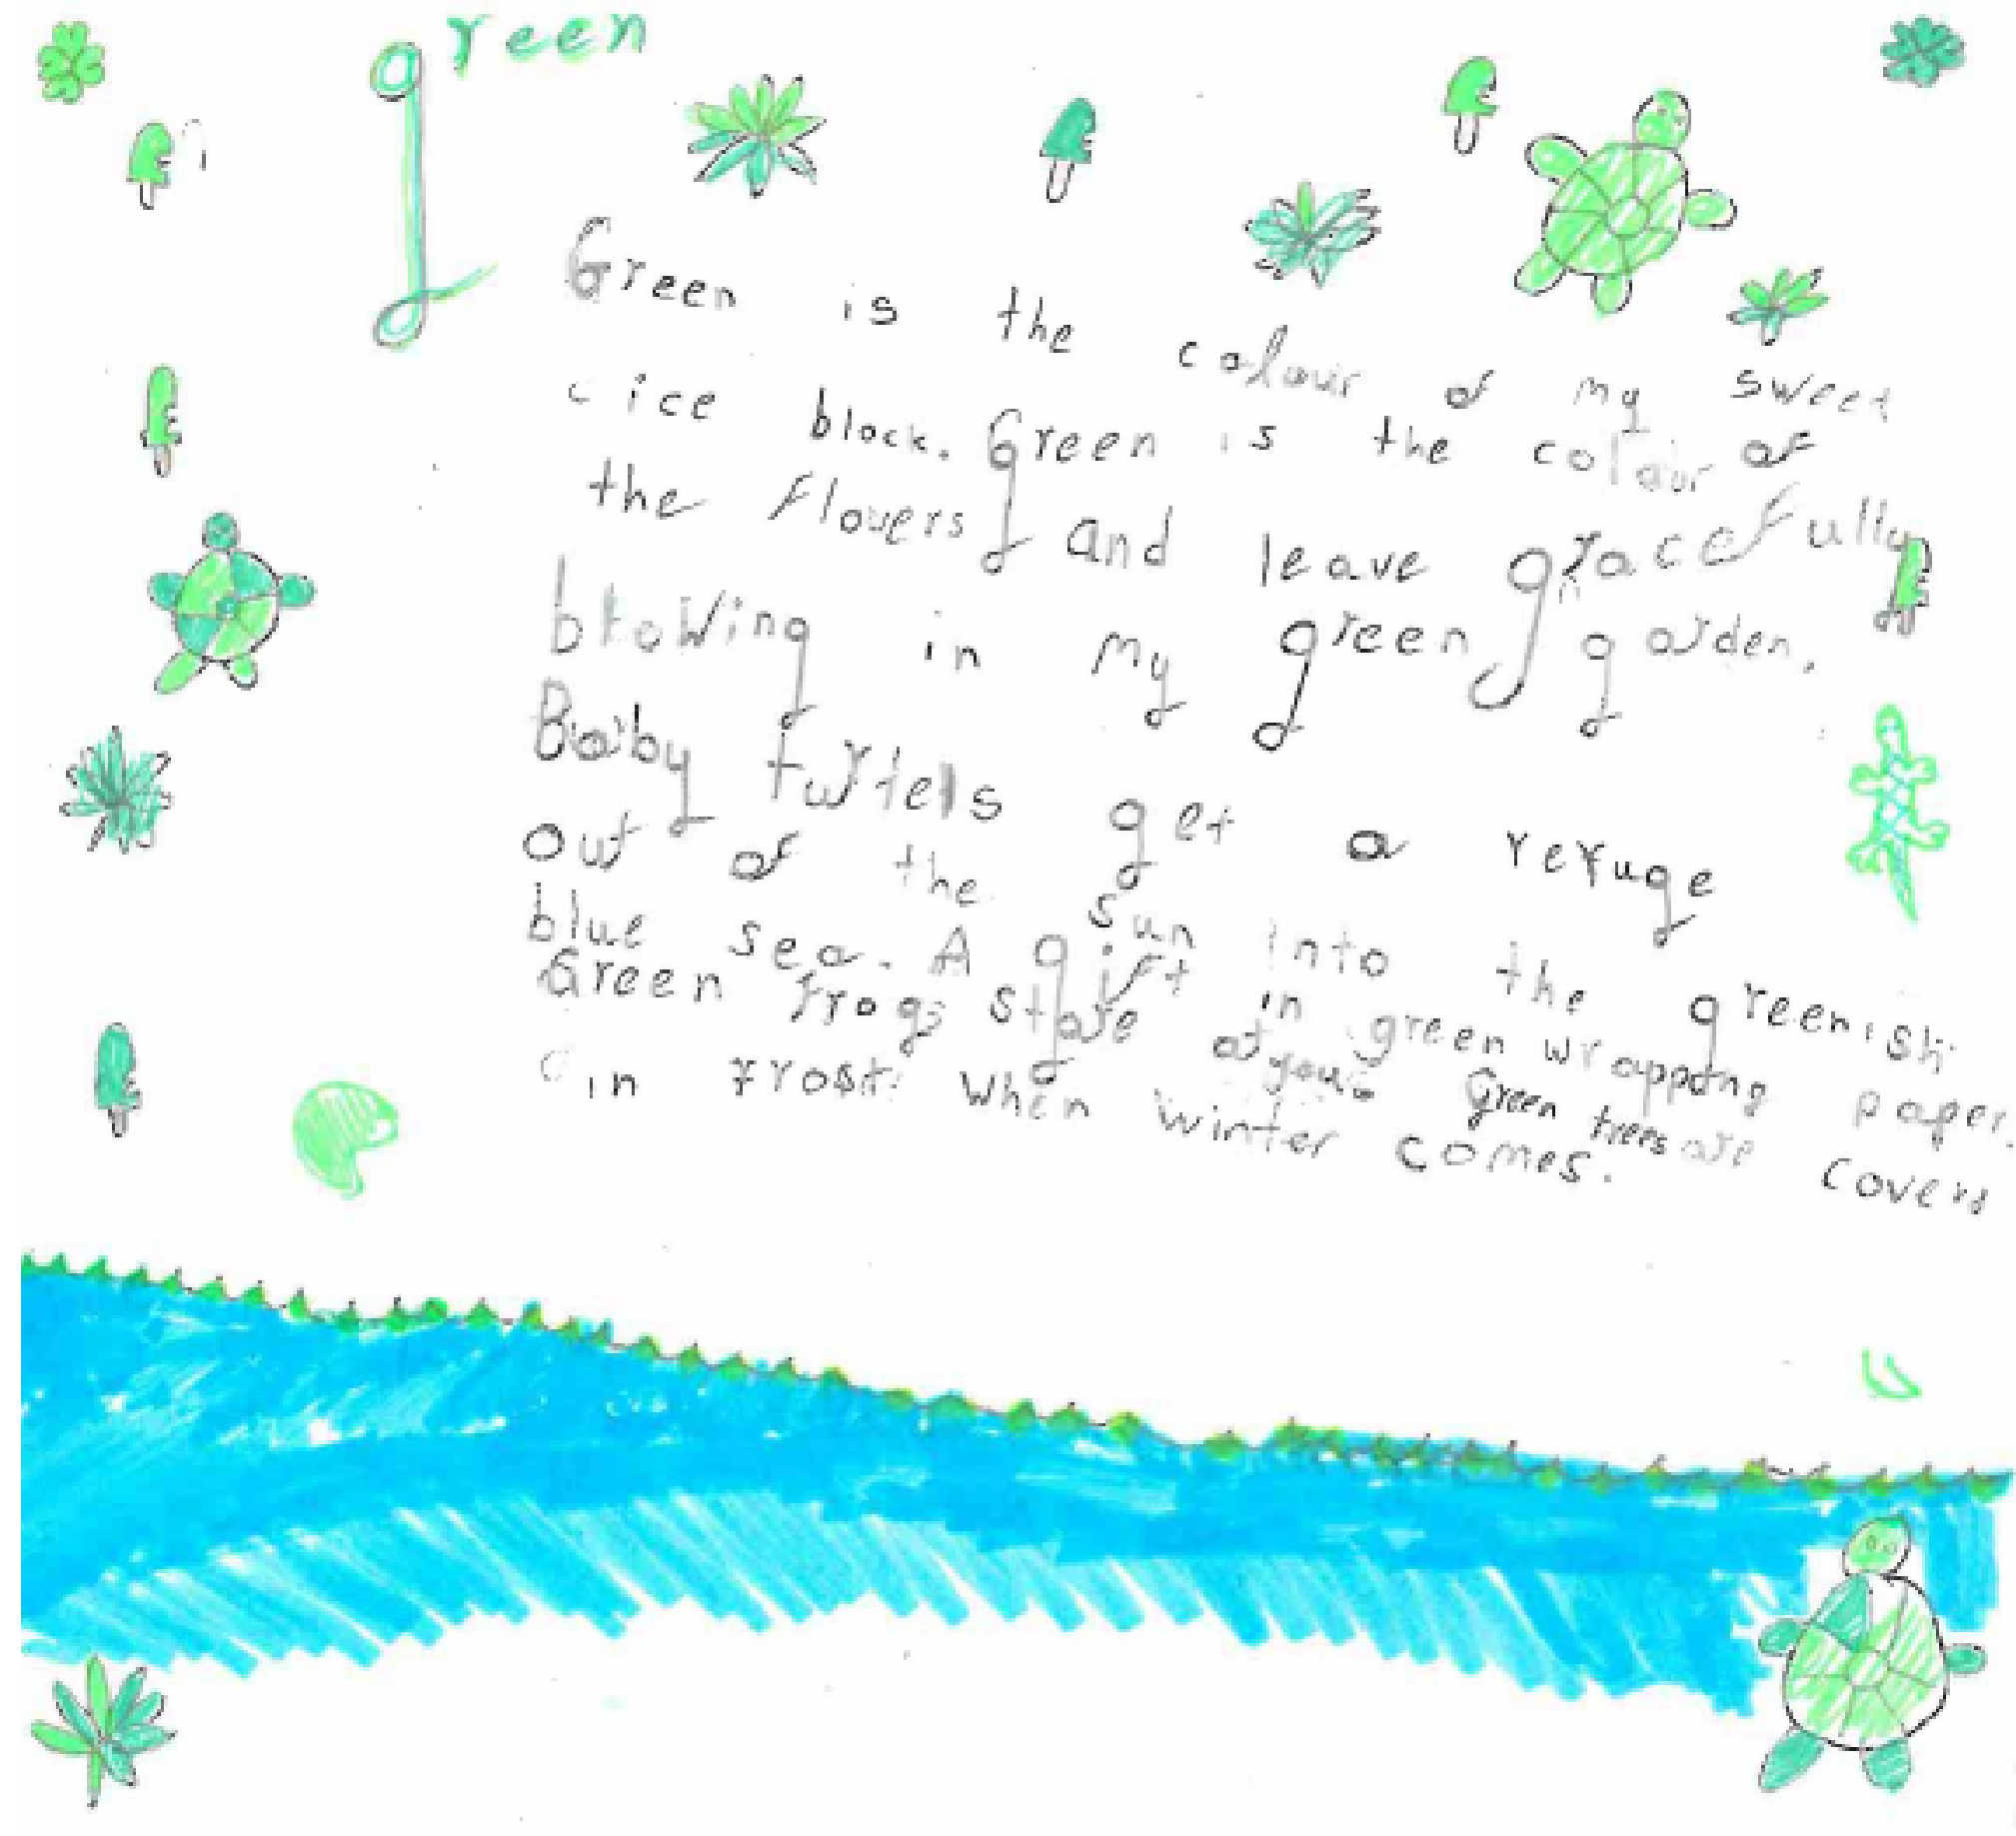 green
Green is the colour of my sweet
ice block. Green is the colour of
the flowers and leave gracefully
blowing in my green garden.
Baby turtels get a refuge
out of the sun into the greenish
blue sea. A gift in green wrapping paper.
Green frogs stare at you. Green trees are coverd
in frost when winter comes.